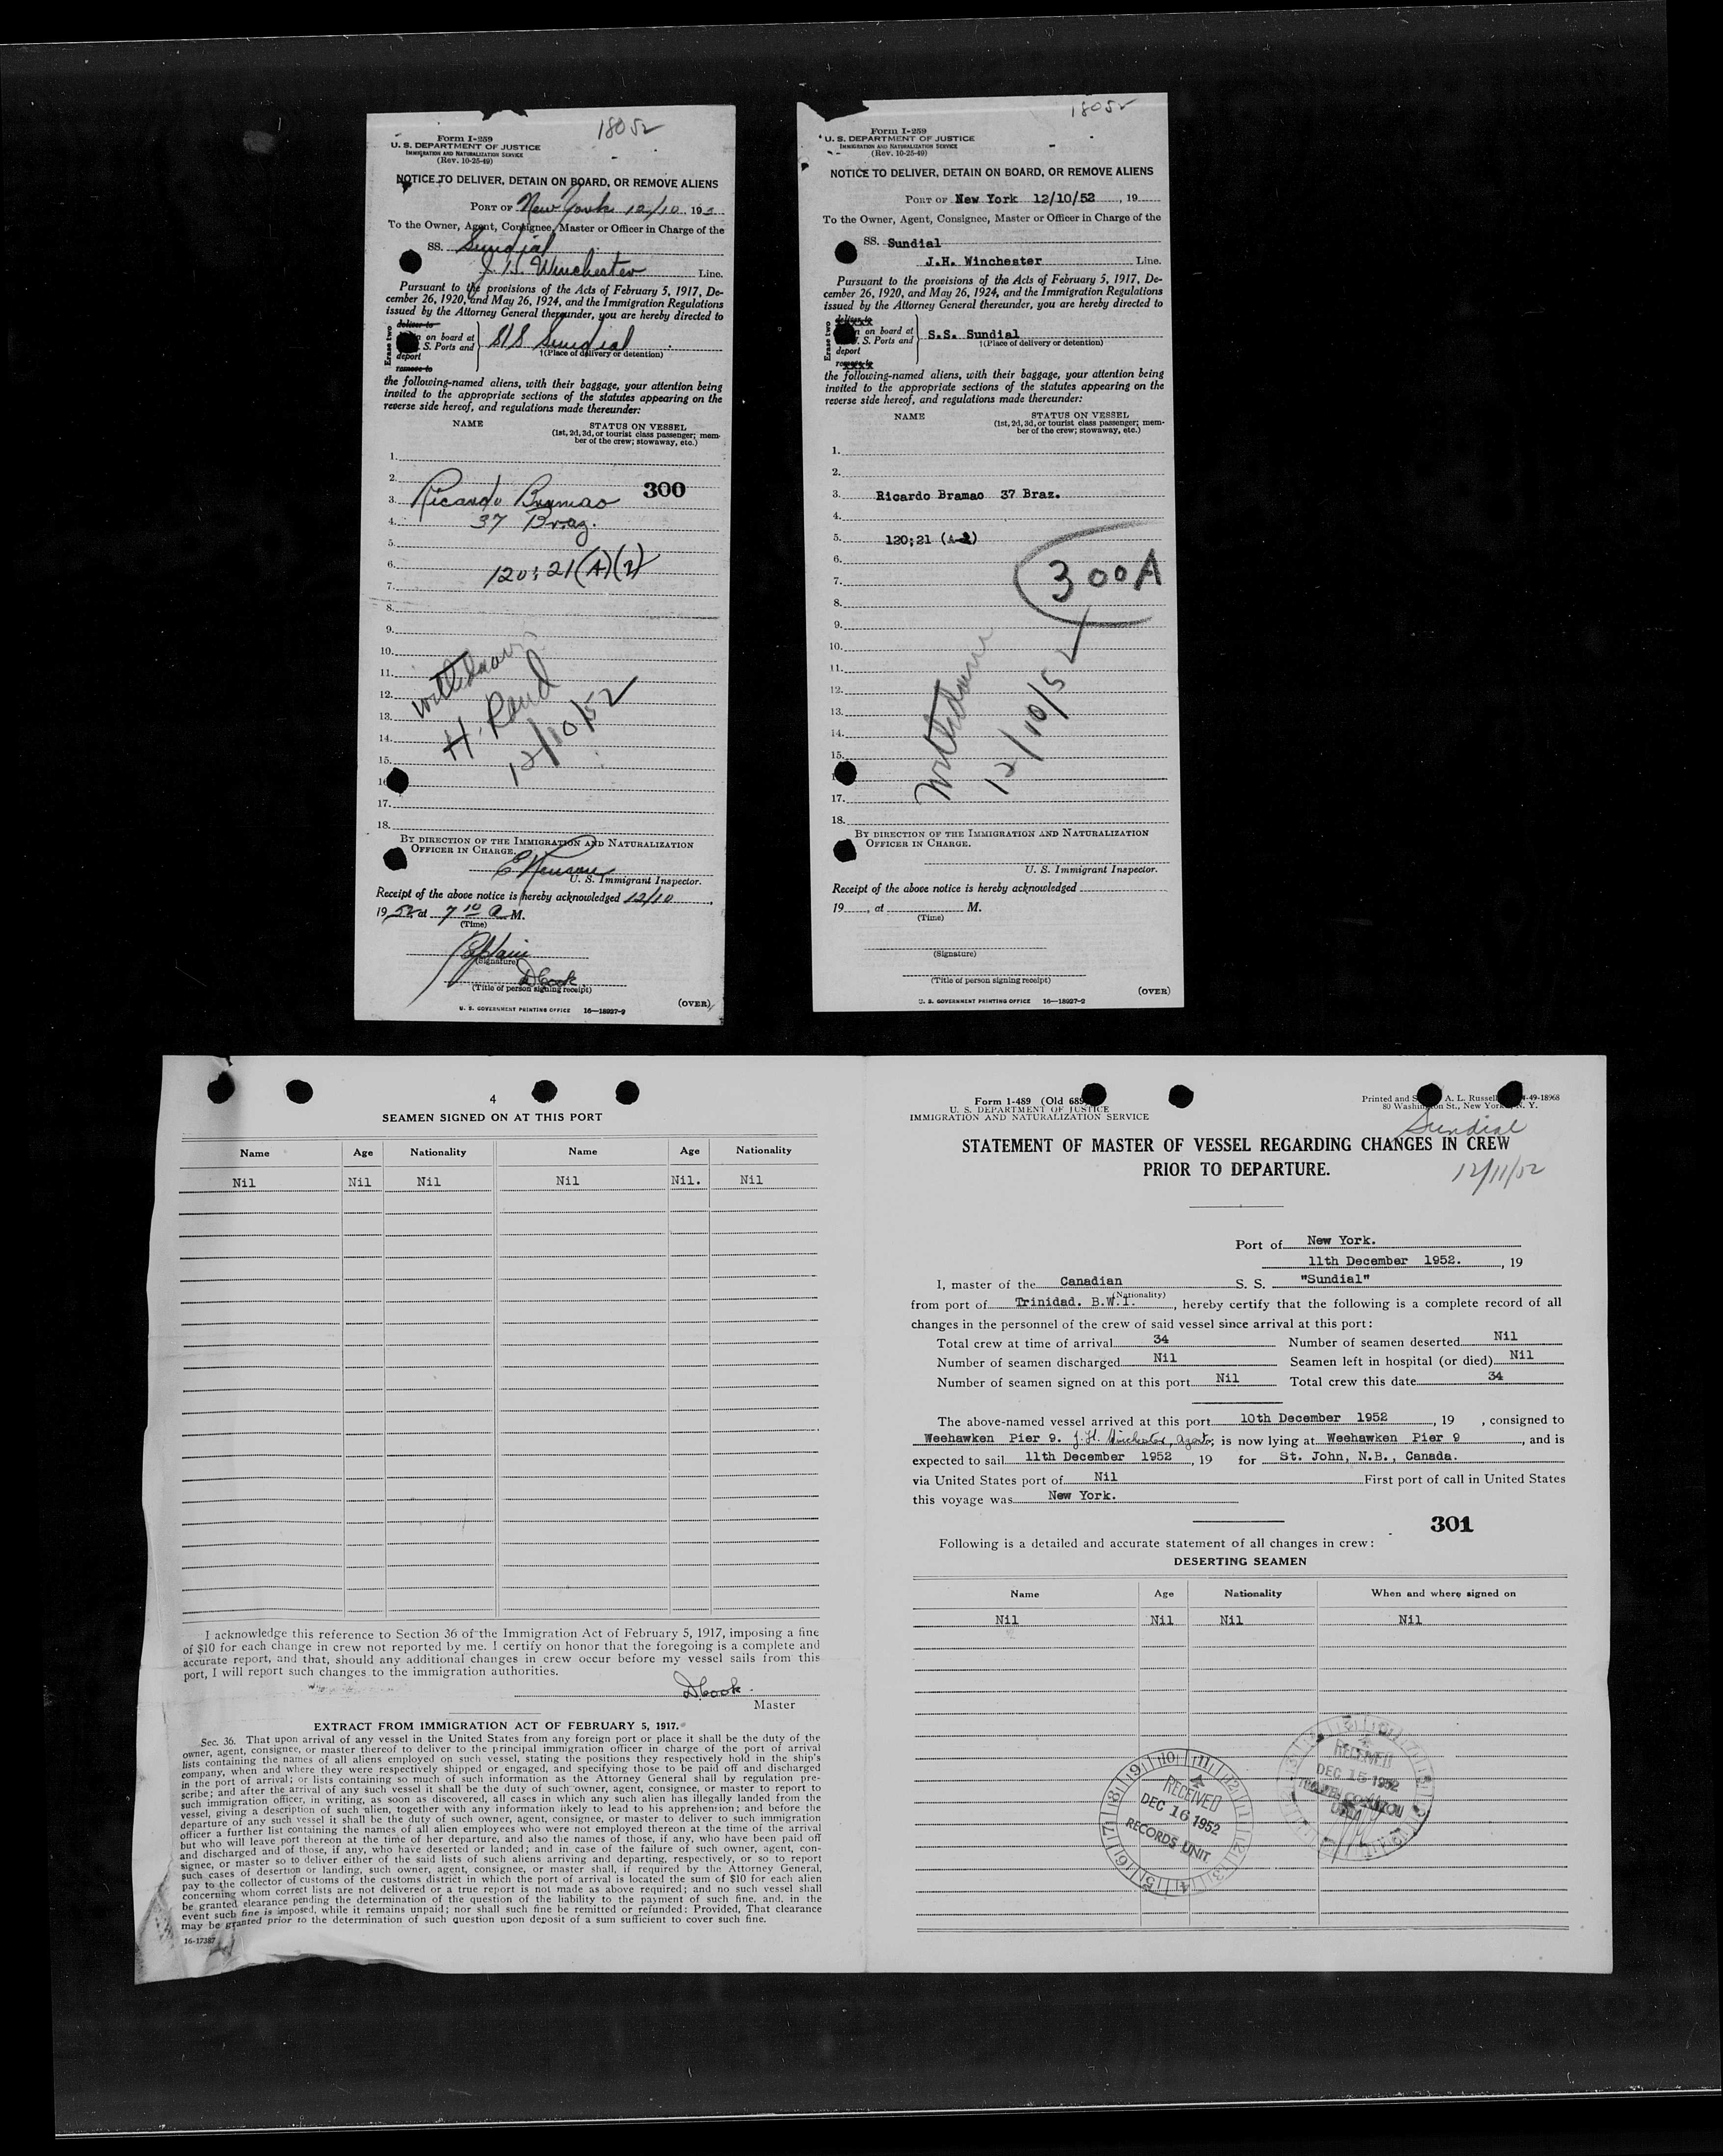 18052
Form I-259
U. S. DEPARTMENT OF JUSTICE
IMMIGRATION AND NATURALIZATION SERVICE
(Rev. 10-25-49)
NOTICE TO DELIVER, DETAIN ON BOARD, OR REMOVE ALIENS
PORT OF New York 12/10, 195
To the Owner, Agent, Consignee, Master or Officer in Charge of the
SS. Sundial
J. H. Winchester Line.
Pursuant to the provisions of the Acts of February 5, 1917, De-
cember 26, 1920, and May 26, 1924, and the Immigration Regulations
issued by the Attorney General thereunder, you are hereby directed to
Erase two
deliver to
on board at
S. Ports and
deport
remove to
S/S Sundial
†(Place of delivery or detention)
the following-named aliens, with their baggage, your attention being
invited to the appropriate sections of the statutes appearing on the
reverse side hereof, and regulations made thereunder:
NAME STATUS ON VESSEL
(1st, 2d, 3d, or tourist class passenger; mem-
ber of the crew; stowaway, etc.)
1.
2.
300
3. Ricardo Bramao
4. 37 Braz.
5.
6. 120:21(A)(2)
7.
8.
9.
10.
11.
12.
13.
14.
15.
16
17.
18.
withdrawn
H. Rand
12/10/52
BY DIRECTION OF THE IMMIGRATION AND NATURALIZATION
OFFICER IN CHARGE.
U. S. Immigrant Inspector.
Receipt of the above notice is hereby acknowledged 12/10,
1952 at 7 10 A M.
(Time)
Captain
(Signature)
D Cook
(Title of person signing receipt)
(OVER)
U. S. GOVERNMENT PRINTING OFFICE 16—18927-2
18052
Form I-259
U. S. DEPARTMENT OF JUSTICE
IMMIGRATION AND NATURALIZATION SERVICE
(Rev. 10-25-49)
NOTICE TO DELIVER, DETAIN ON BOARD, OR REMOVE ALIENS
PORT OF New York 12/10/52, 19
To the Owner, Agent, Consignee, Master or Officer in Charge of the
SS. Sundial
J.H. Winchester Line.
Pursuant to the provisions of the Acts of February 5, 1917, De-
cember 26, 1920, and May 26, 1924, and the Immigration Regulations
issued by the Attorney General thereunder, you are hereby directed to
Erase two
deliver to
n on board at
S. Ports and
deport
remove to
S.S. Sundial
†(Place of delivery or detention)
the following-named aliens, with their baggage, your attention being
invited to the appropriate sections of the statutes appearing on the
reverse side hereof, and regulations made thereunder:
NAME STATUS ON VESSEL
(1st, 2d, 3d, or tourist class passenger; mem-
ber of the crew; stowaway, etc.)
1.
2.
3. Ricardo Bramao 37 Braz.
4.
5. 120;21 (A-2)
6.
300A
7.
8.
9.
10.
11.
12.
13.
14.
15.
17.
18.
Withdrawn
12/10/52
BY DIRECTION OF THE IMMIGRATION AND NATURALIZATION
OFFICER IN CHARGE.
U. S. Immigrant Inspector.
Receipt of the above notice is hereby acknowledged
19 , at M.
(Time)
(Signature)
(Title of person signing receipt)
(OVER)
U. S. GOVERNMENT PRINTING OFFICE 16—18927-2
4
SEAMEN SIGNED ON AT THIS PORT
Name Age Nationality Name Age Nationality
Nil Nil Nil Nil Nil. Nil
I acknowledge this reference to Section 36 of the Immigration Act of February 5, 1917, imposing a fine
of $10 for each change in crew not reported by me. I certify on honor that the foregoing is a complete and
accurate report, and that, should any additional changes in crew occur before my vessel sails from this
port, I will report such changes to the immigration authorities.
D Cook.
Master
EXTRACT FROM IMMIGRATION ACT OF FEBRUARY 5, 1917.
Sec. 36. That upon arrival of any vessel in the United States from any foreign port or place it shall be the duty of the
owner, agent, consignee, or master thereof to deliver to the principal immigration officer in charge of the port of arrival
lists containing the names of all aliens employed on such vessel, stating the positions they respectively hold in the ship's
company, when and where they were respectively shipped or engaged, and specifying those to be paid off and discharged
in the port of arrival; or lists containing so much of such information as the Attorney General shall by regulation pre-
scribe; and after the arrival of any such vessel it shall be the duty of such owner, agent, consignee, or master to report to
such immigration officer, in writing, as soon as discovered, all cases in which any such alien has illegally landed from the
vessel, giving a description of such alien, together with any information likely to lead to his apprehension; and before the
departure of any such vessel it shall be the duty of such owner, agent, consignee, or master to deliver to such immigration
officer a further list containing the names of all alien employees who were not employed thereon at the time of the arrival
but who will leave port thereon at the time of her departure, and also the names of those, if any, who have been paid off
and discharged and of those, if any, who have deserted or landed; and in case of the failure of such owner, agent, con-
signee, or master so to deliver either of the said lists of such aliens arriving and departing, respectively, or so to report
such cases of desertion or landing, such owner, agent, consignee, or master shall, if required by the Attorney General,
pay to the collector of customs of the customs district in which the port of arrival is located the sum of $10 for each alien
concerning whom correct lists are not delivered or a true report is not made as above required; and no such vessel shall
be granted clearance pending the determination of the question of the liability to the payment of such fine, and, in the
event such fine is imposed, while it remains unpaid; nor shall such fine be remitted or refunded: Provided, That clearance
may be granted prior to the determination of such question upon deposit of a sum sufficient to cover such fine.
16-17387
Form 1-489 (Old 689
U. S. DEPARTMENT OF JUSTICE
IMMIGRATION AND NATURALIZATION SERVICE
Printed and S A. L. Russell 49-18968
80 Washington St., New York, N. Y.
Sundial
STATEMENT OF MASTER OF VESSEL REGARDING CHANGES IN CREW
PRIOR TO DEPARTURE.
12/11/52
Port of New York.
11th December 1952. , 19
I, master of the Canadian S. S. "Sundial"
(Nationality)
from port of Trinidad. B.W.I. , hereby certify that the following is a complete record of all
changes in the personnel of the crew of said vessel since arrival at this port:
Total crew at time of arrival 34 Number of seamen deserted Nil
Number of seamen discharged Nil Seamen left in hospital (or died) Nil
Number of seamen signed on at this port Nil Total crew this date 34
The above-named vessel arrived at this port 10th December 1952 , 19 , consigned to
Weehawken Pier 9. J. H. Winchester, Agents; is now lying at Weehawken Pier 9 , and is
expected to sail 11th December 1952 , 19 for St. John, N.B., Canada.
via United States port of Nil First port of call in United States
this voyage was New York.
301
Following is a detailed and accurate statement of all changes in crew:
DESERTING SEAMEN
Name Age Nationality When and where signed on
Nil Nil Nil Nil
RECEIVED
DEC 16 1952
RECORDS UNIT
RECEIVED
DEC 15 1952